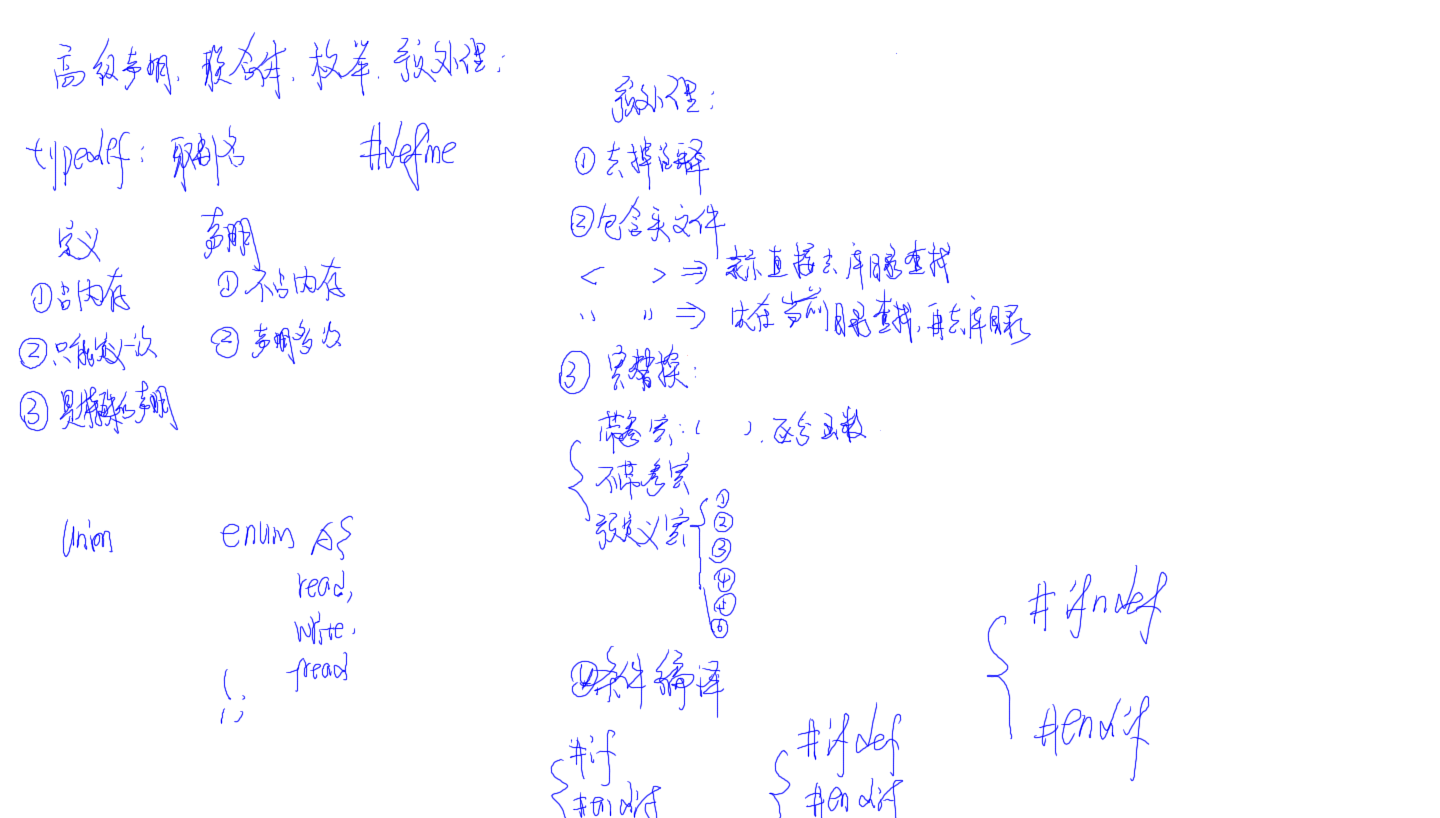 高级声明, 联合体, 枚举, 预处理:
typedef: 取别名 #define
定义 声明
①占内存 ①不占内存
②只能定义一次 ②声明多次
③是特殊的声明
union enum A{
read,
write,
fread
};
预处理:
①去掉注释
②包含头文件
< > ⇒ 表示直接去库目录查找
" " ⇒ 先在当前目录查找, 再去库目录
③宏替换:
带参宏: ( ),
不带参宏
预定义宏 ① ② ③ ④ ④ ⑥
④条件编译
#if
#endif
#ifdef
#endif
#ifndef
#endif